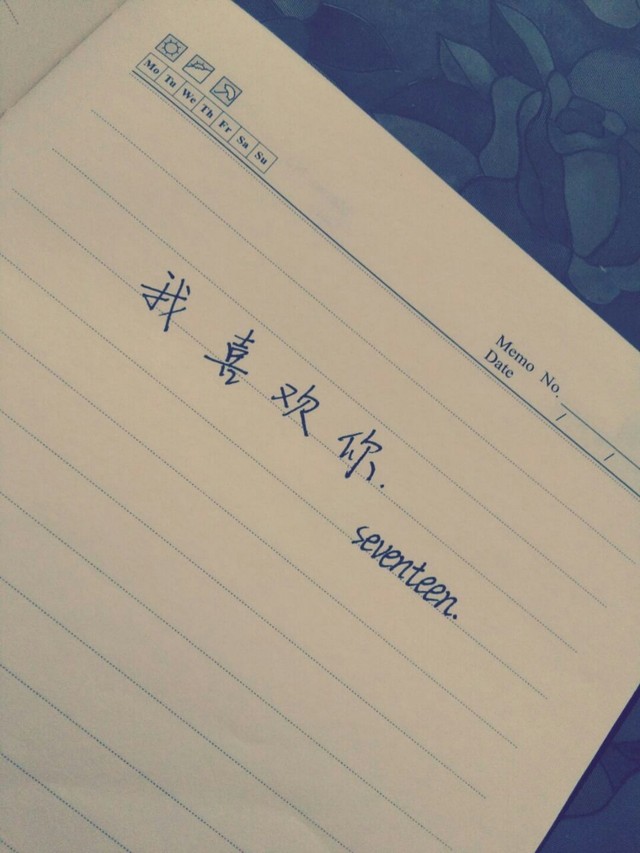 Mo Tu We Th Fr Sa Su
Memo No.
Date / /
我喜欢你.
seventeen.